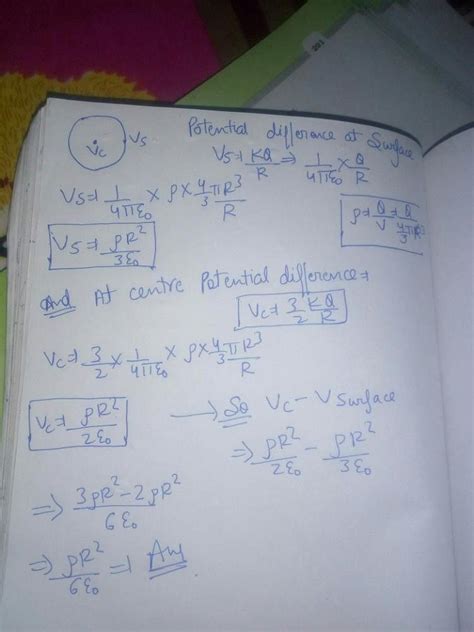 Potential difference at Surface
Vc Vs
Vs=1 KQ/R ⇒ 1/4πε₀ × Q/R
Vs=1 1/4πε₀ × ρ × 4/3 πR³/R
ρ=1 Q/V =1 Q/(4/3 πR³)
Vs=1 ρR²/3ε₀
And At centre Potential difference=1
Vc=1 3/2 KQ/R
Vc=1 3/2 × 1/4πε₀ × ρ × 4/3 πR³/R
Vc=1 ρR²/2ε₀
→ So Vc - V surface
⇒ ρR²/2ε₀ - ρR²/3ε₀
⇒ 3ρR² - 2ρR²/6ε₀
⇒ ρR²/6ε₀ =1 Ans